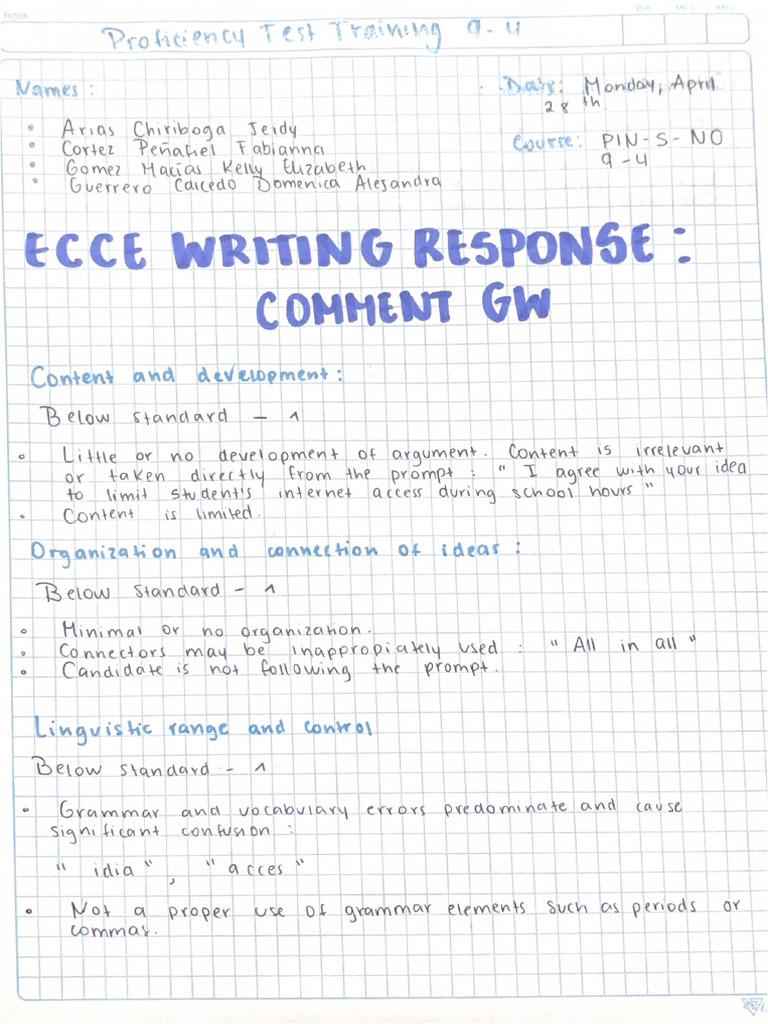 NOTA
DIA MES AÑO
Proficiency Test Training 9-4
Names:
Date: Monday, April 28th
• Arias Chiriboga Jeidy
• Cortez Peñafiel Fabianna
• Gomez Macías Kelly Elizabeth
• Guerrero Caicedo Domenica Alejandra
Course: PIN-S-NO
9-4
ECCE WRITING RESPONSE:
COMMENT GW
Content and development:
Below standard - 1
• Little or no development of argument. Content is irrelevant
or taken directly from the prompt: "I agree with your idea
to limit student's internet access during school hours"
• Content is limited.
Organization and connection of ideas:
Below Standard - 1
• Minimal or no organization.
• Connectors may be inappropiately used: "All in all"
• Candidate is not following the prompt.
Linguistic range and control
Below standard - 1
• Grammar and vocabulary errors predominate and cause
significant confusion:
"idia", "acces"
• Not a proper use of grammar elements such as periods or
commas.